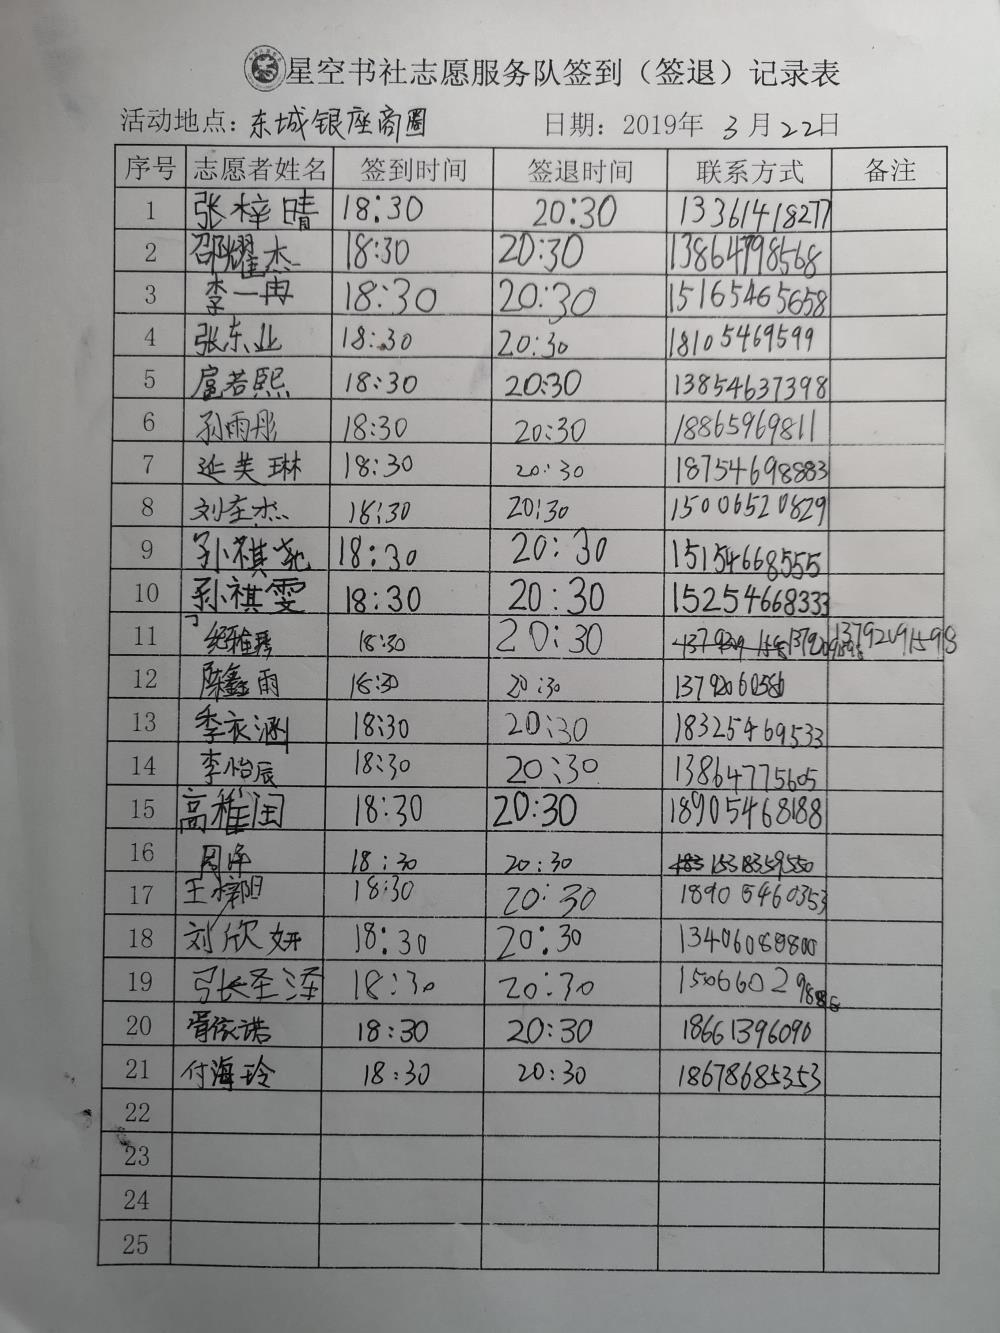 星空书社志愿服务队签到（签退）记录表
活动地点：东城银座商圈 日期：2019年 3月22日
序号 志愿者姓名 签到时间 签退时间 联系方式 备注
1 张梓晴 18:30 20:30 13361418277
2 邵耀杰 18:30 20:30 13864798568
3 李一冉 18:30 20:30 15165465658
4 张东业 18:30 20:30 18105469599
5 扈若熙 18:30 20:30 13854637398
6 孙雨彤 18:30 20:30 18865969811
7 延芙琳 18:30 20:30 18754698883
8 刘奎杰 18:30 20:30 15006520829
9 孙祺尧 18:30 20:30 15154668555
10 孙祺雯 18:30 20:30 15254668333
11 18:30 20:30 13792091598
12 陈鑫雨 18:30 20:30 1379206058
13 季衣涵 18:30 20:30 18325469533
14 李怡辰 18:30 20:30 13864775605
15 高稚闰 18:30 20:30 18905468188
16 周泽 18:30 20:30 15318359550
17 王 18:30 20:30 18905460353
18 刘欣妍 18:30 20:30 13406089800
19 张圣泽 18:30 20:30
20 胥依诺 18:30 20:30 18661396090
21 付海玲 18:30 20:30 18678685353
22
23
24
25